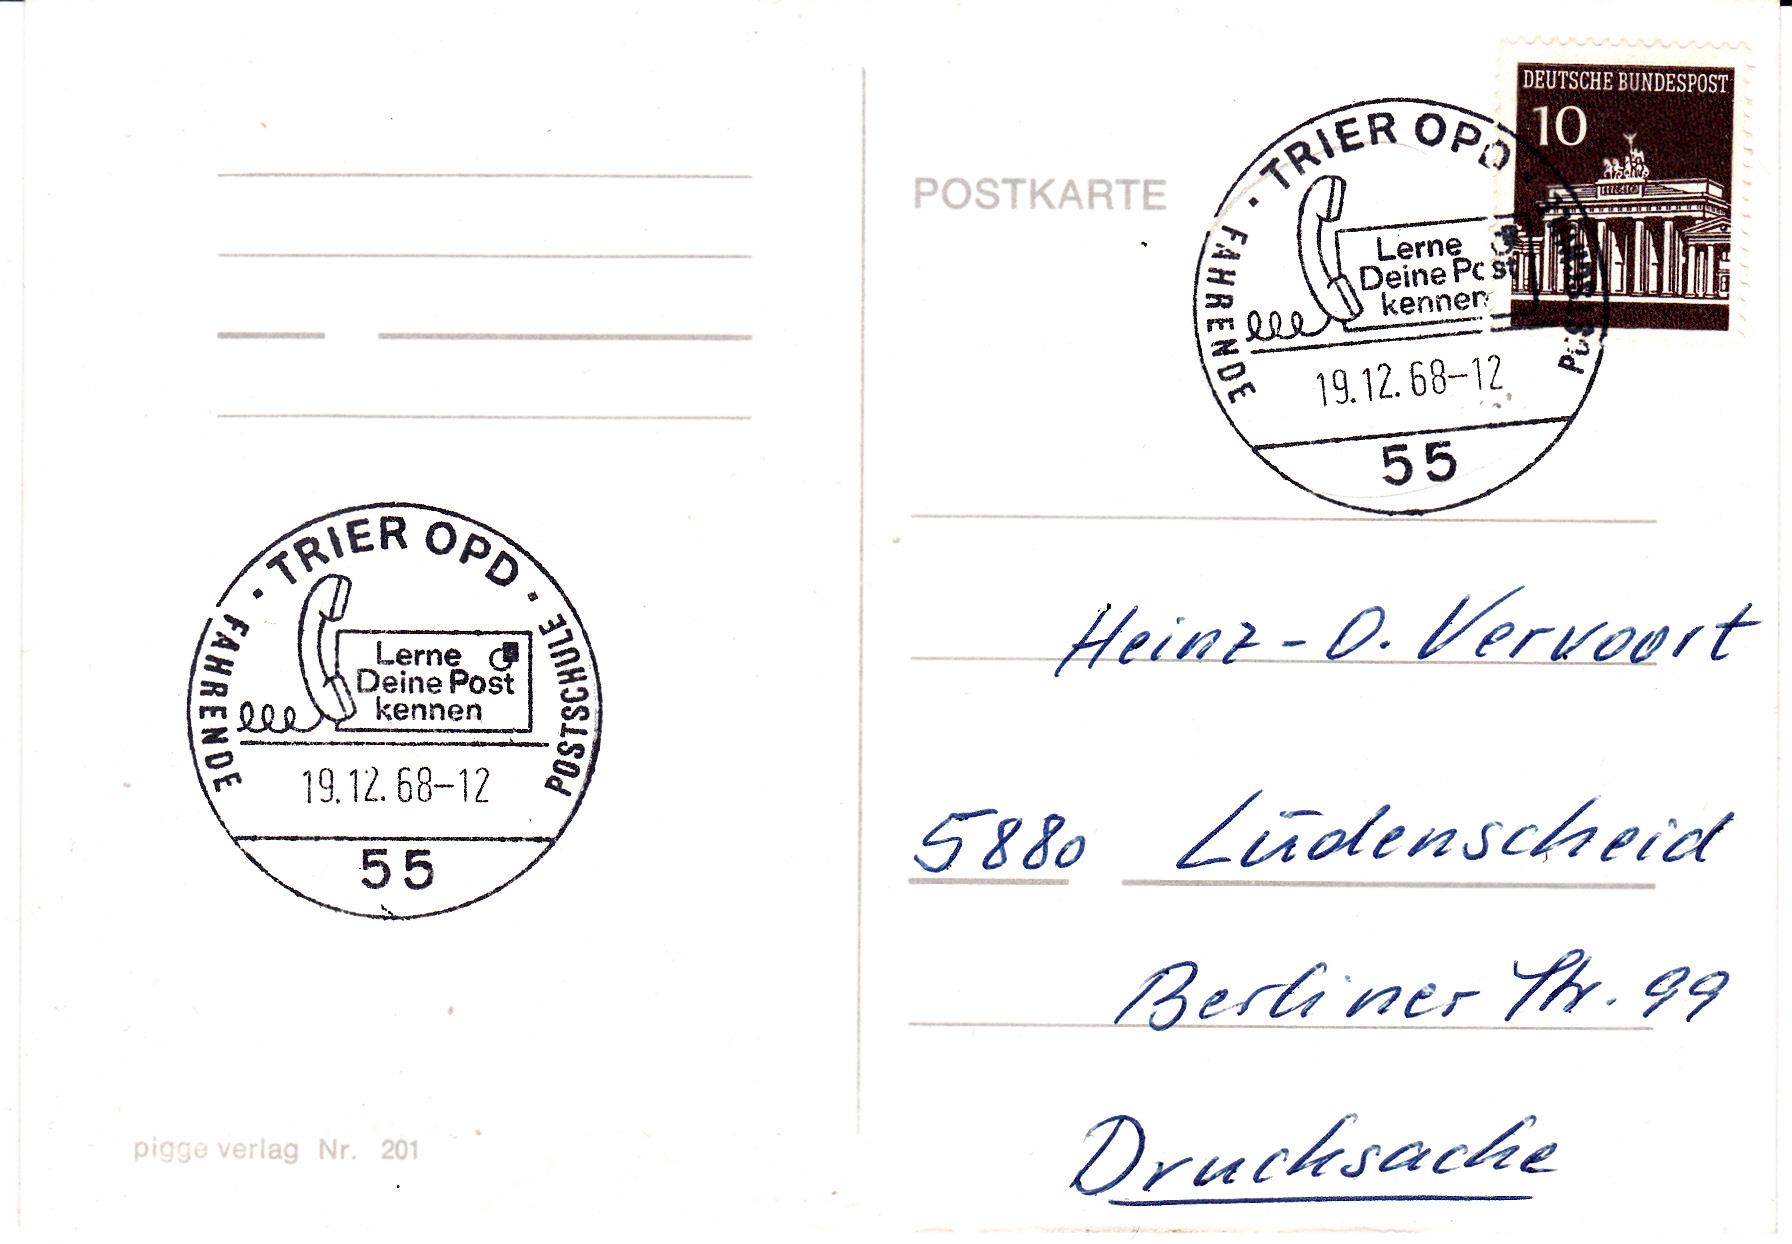 POSTKARTE
DEUTSCHE BUNDESPOST
10
TRIER OPD
FAHRENDE POSTSCHULE
Lerne
Deine Post
kennen
19.12.68-12
55
TRIER OPD
FAHRENDE POSTSCHULE
Lerne
Deine Post
kennen
19.12.68-12
55
Heinz-O. Vervoort
5880 Lüdenscheid
Berliner Str. 99
Drucksache
pigge verlag Nr. 201